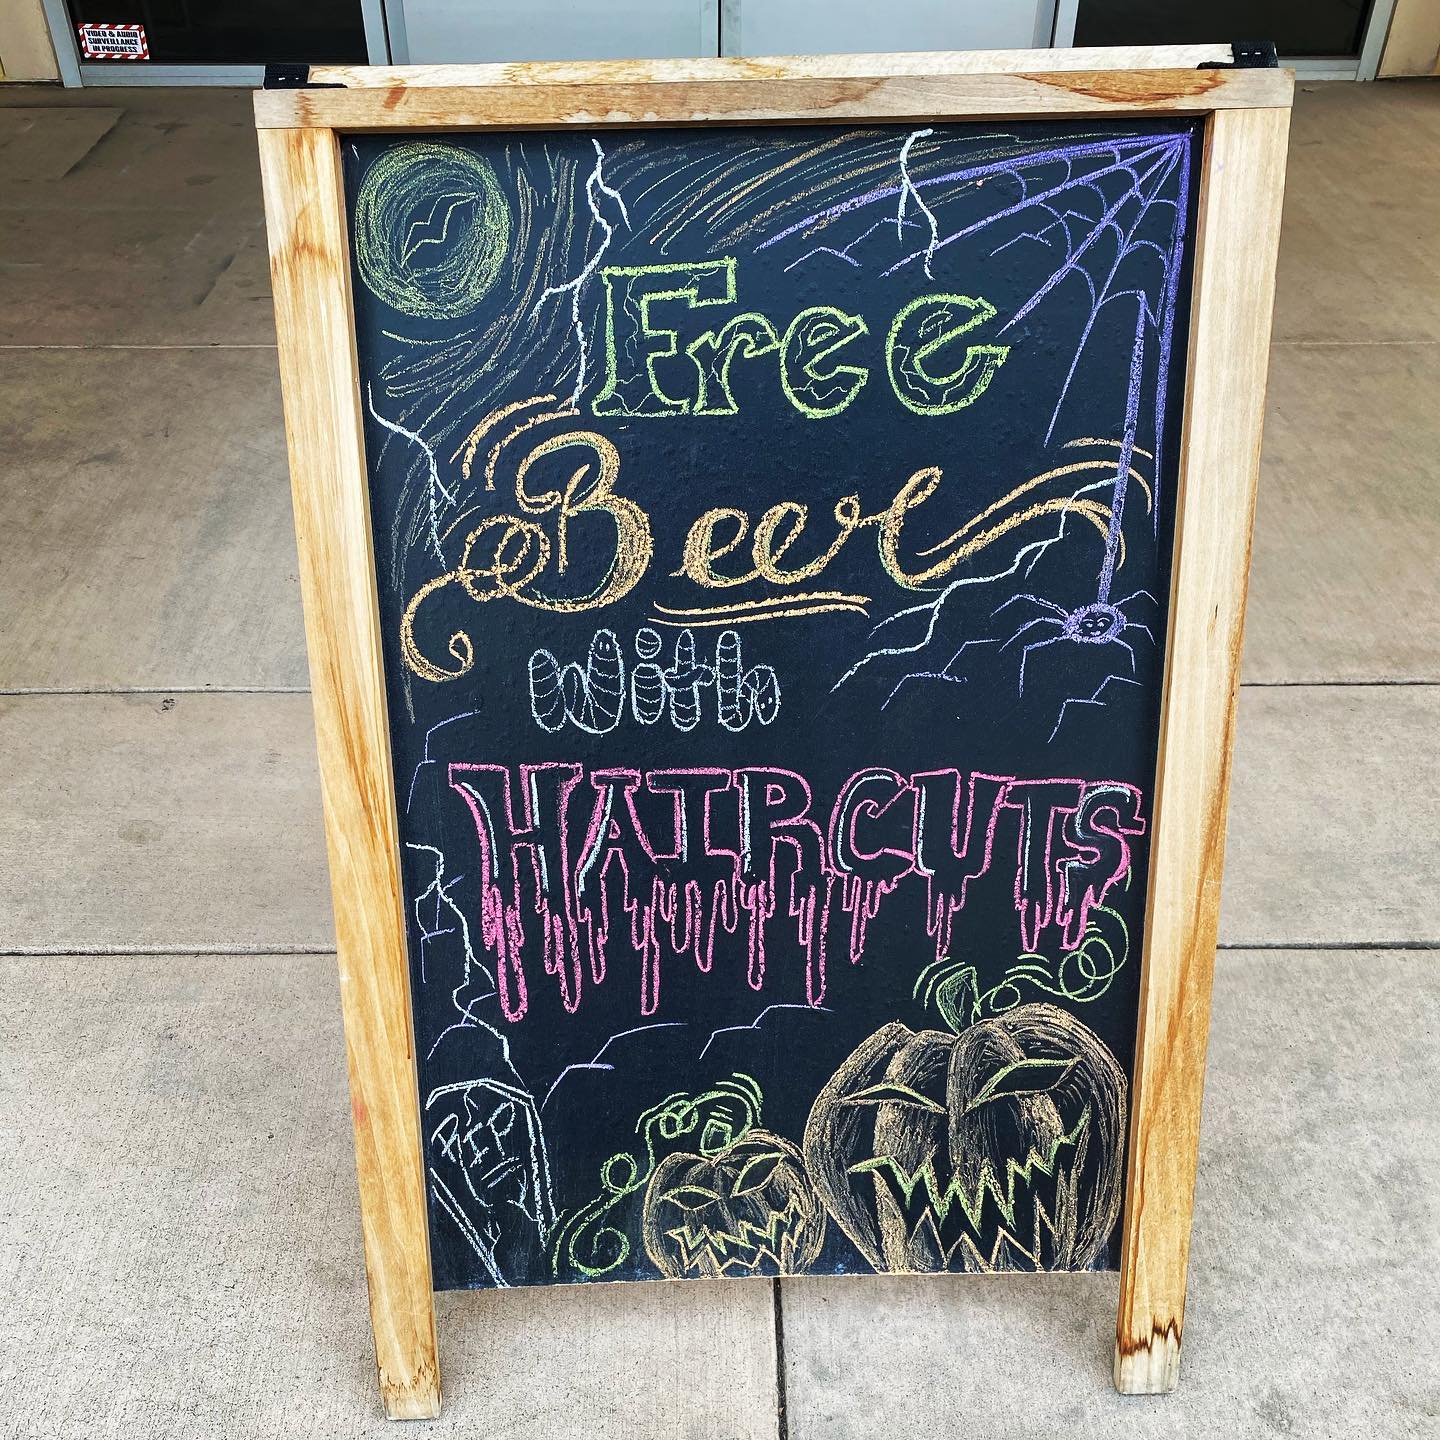 VIDEO & AUDIO
SURVEILLANCE
IN PROGRESS
Free
Beer
with
HAIRCUTS
RIP